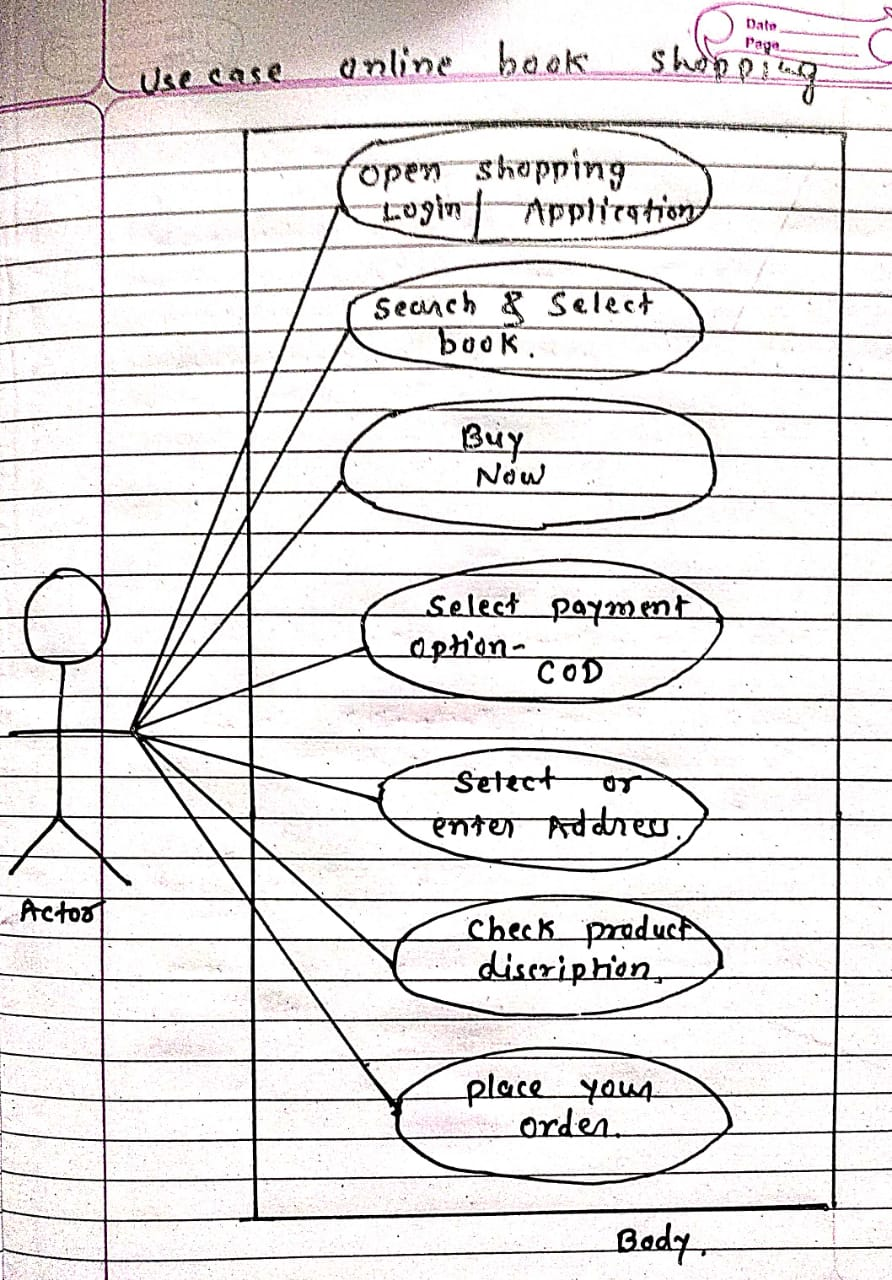 Date
Page
Use case online book shopping
Open shopping
Login / Application
Search & Select
book.
Buy
Now
Select payment
option-
COD
Select or
enter Address.
Check product
discription.
place your
order.
Actor
Body.